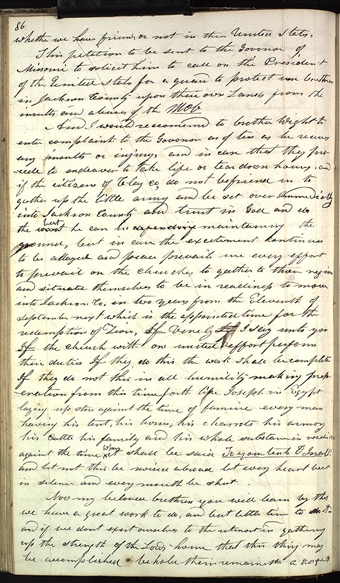 86
whether we have friends or not in these United States,
This petition to be sent to the Govonor of
Missouri to solicit him to call on the President
of the United States for a guard to protect our brethren
in Jackson County upon their own Lands from the
insults and abuses of the Mob
And I would reccomend to brother Wight to
enter complaint to the Govonor as often as he receves
any insults or injury, and in case that they pro-
ceede to endeaver to take life or tear down houses, and
if the citizens of Clay co, do not befriend us to
gather up the little army and be set over immediately
into Jackson County and trust in God and do
the best he can in maintaining the
ground, but in case the excitement continues
to be allayed and peace prevails use every effort
to prevail on the churches to gather to those regions
and situate themselves to be in readiness to move
into Jackson Co, in two years from the Eleventh of
September next which is the appointed time for the
redemption of Zion, If Verely I say unto you
If the church with one united effort perform
their duties If they do this the work shall be complete
If they do not this in all humility making prep-
eration from this time forth like Joseph in Egypt
laying up store against the time of famine every man
having his tent, his horses, his charrots his armory
his cattle his family and his whole substance in readiness
against the time when it shall be said To your tents O Isreal
and let not this be noised abroad let every heart beat
in silence and every mouth be shut
Now my beloved brethren you will learn by this
we have a great work to do, and but little time to do it in
and if we dont exert ourselves to the utmost in gathering
up the strength of the Lords house that this thing may
be accomplished behold there remaineth a